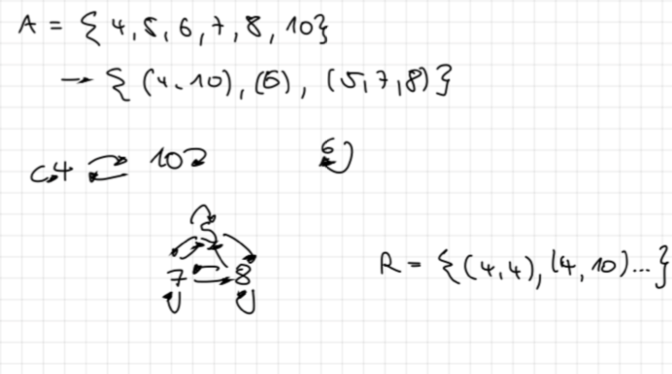 A = { 4, 5, 6, 7, 8, 10}
→ { (4, 10), (6), (5, 7, 8) }
4 10 6
5
7 8
R = { (4,4), (4, 10)... }